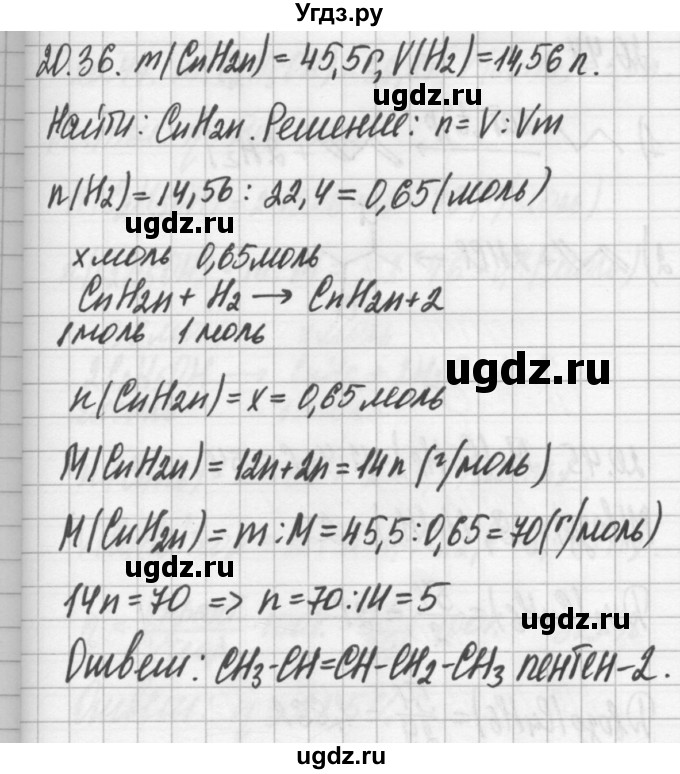 Угдз.ру
20.36. m(CnH2n) = 45,5г, V(H2) = 14,56 л.
ugdz.ru
Найти: CnH2n. Решение: n = V : Vm
n(H2) = 14,56 : 22,4 = 0,65 (моль)
ugdz.ru
x моль 0,65 моль
CnH2n + H2 → CnH2n+2
1 моль 1 моль
ugdz.ru
n(CnH2n) = x = 0,65 моль
M(CnH2n) = 12n + 2n = 14n (г/моль)
M(CnH2n) = m : M = 45,5 : 0,65 = 70 (г/моль)
ugdz.ru
14n = 70 => n = 70 : 14 = 5
ugdz.ru
Ответ: CH3-CH=CH-CH2-CH3 пентен-2.
ugdz.ru